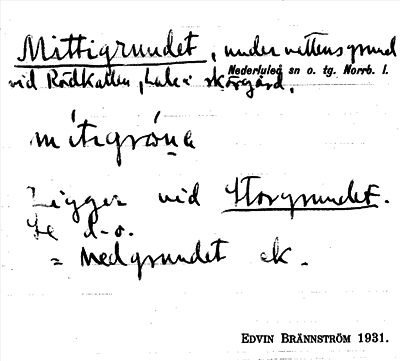 Mittigrundet, undervattensgrund
vid Rödkallen, Lule skärgård.
Nederluleå sn o. tg. Norrb. l.
mítigróna
Ligger vid Storgrundet.
Se d. o.
= Nedgrundet ek.
EDVIN BRÄNNSTRÖM 1931.